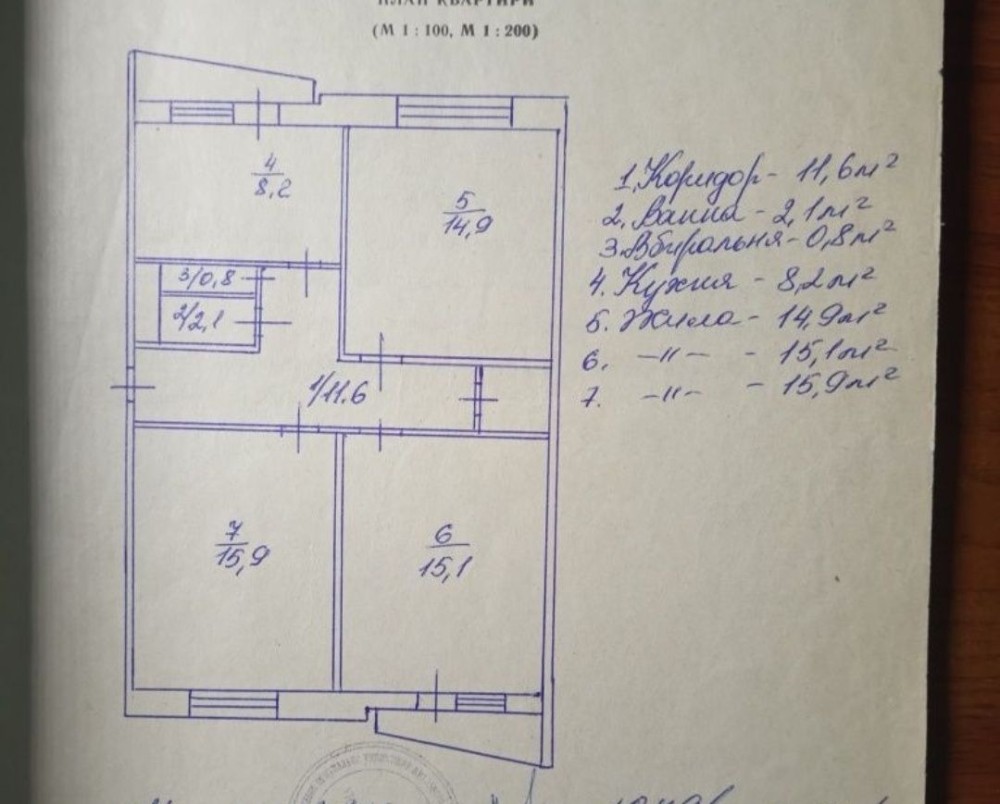 ПЛАН КВАРТИРИ
(М 1 : 100, М 1 : 200)
4
8,2
5
14,9
3/0,8
2/2,1
1/11.6
7
15,9
6
15,1
1. Коридор - 11,6м²
2. Ванна - 2,1м²
3. Вбиральня - 0,8м²
4. Кухня - 8,2м²
5. Жила - 14,9м²
6. —"— - 15,1м²
7. —"— - 15,9м²